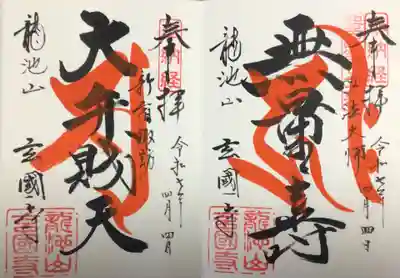 奉拝
令和七年 四月四日
無量寿
龍池山
玄國寺
龍池山
玄國寺
奉拝
令和七年 四月四日
大弁財天
龍池山
玄國寺
龍池山
玄國寺